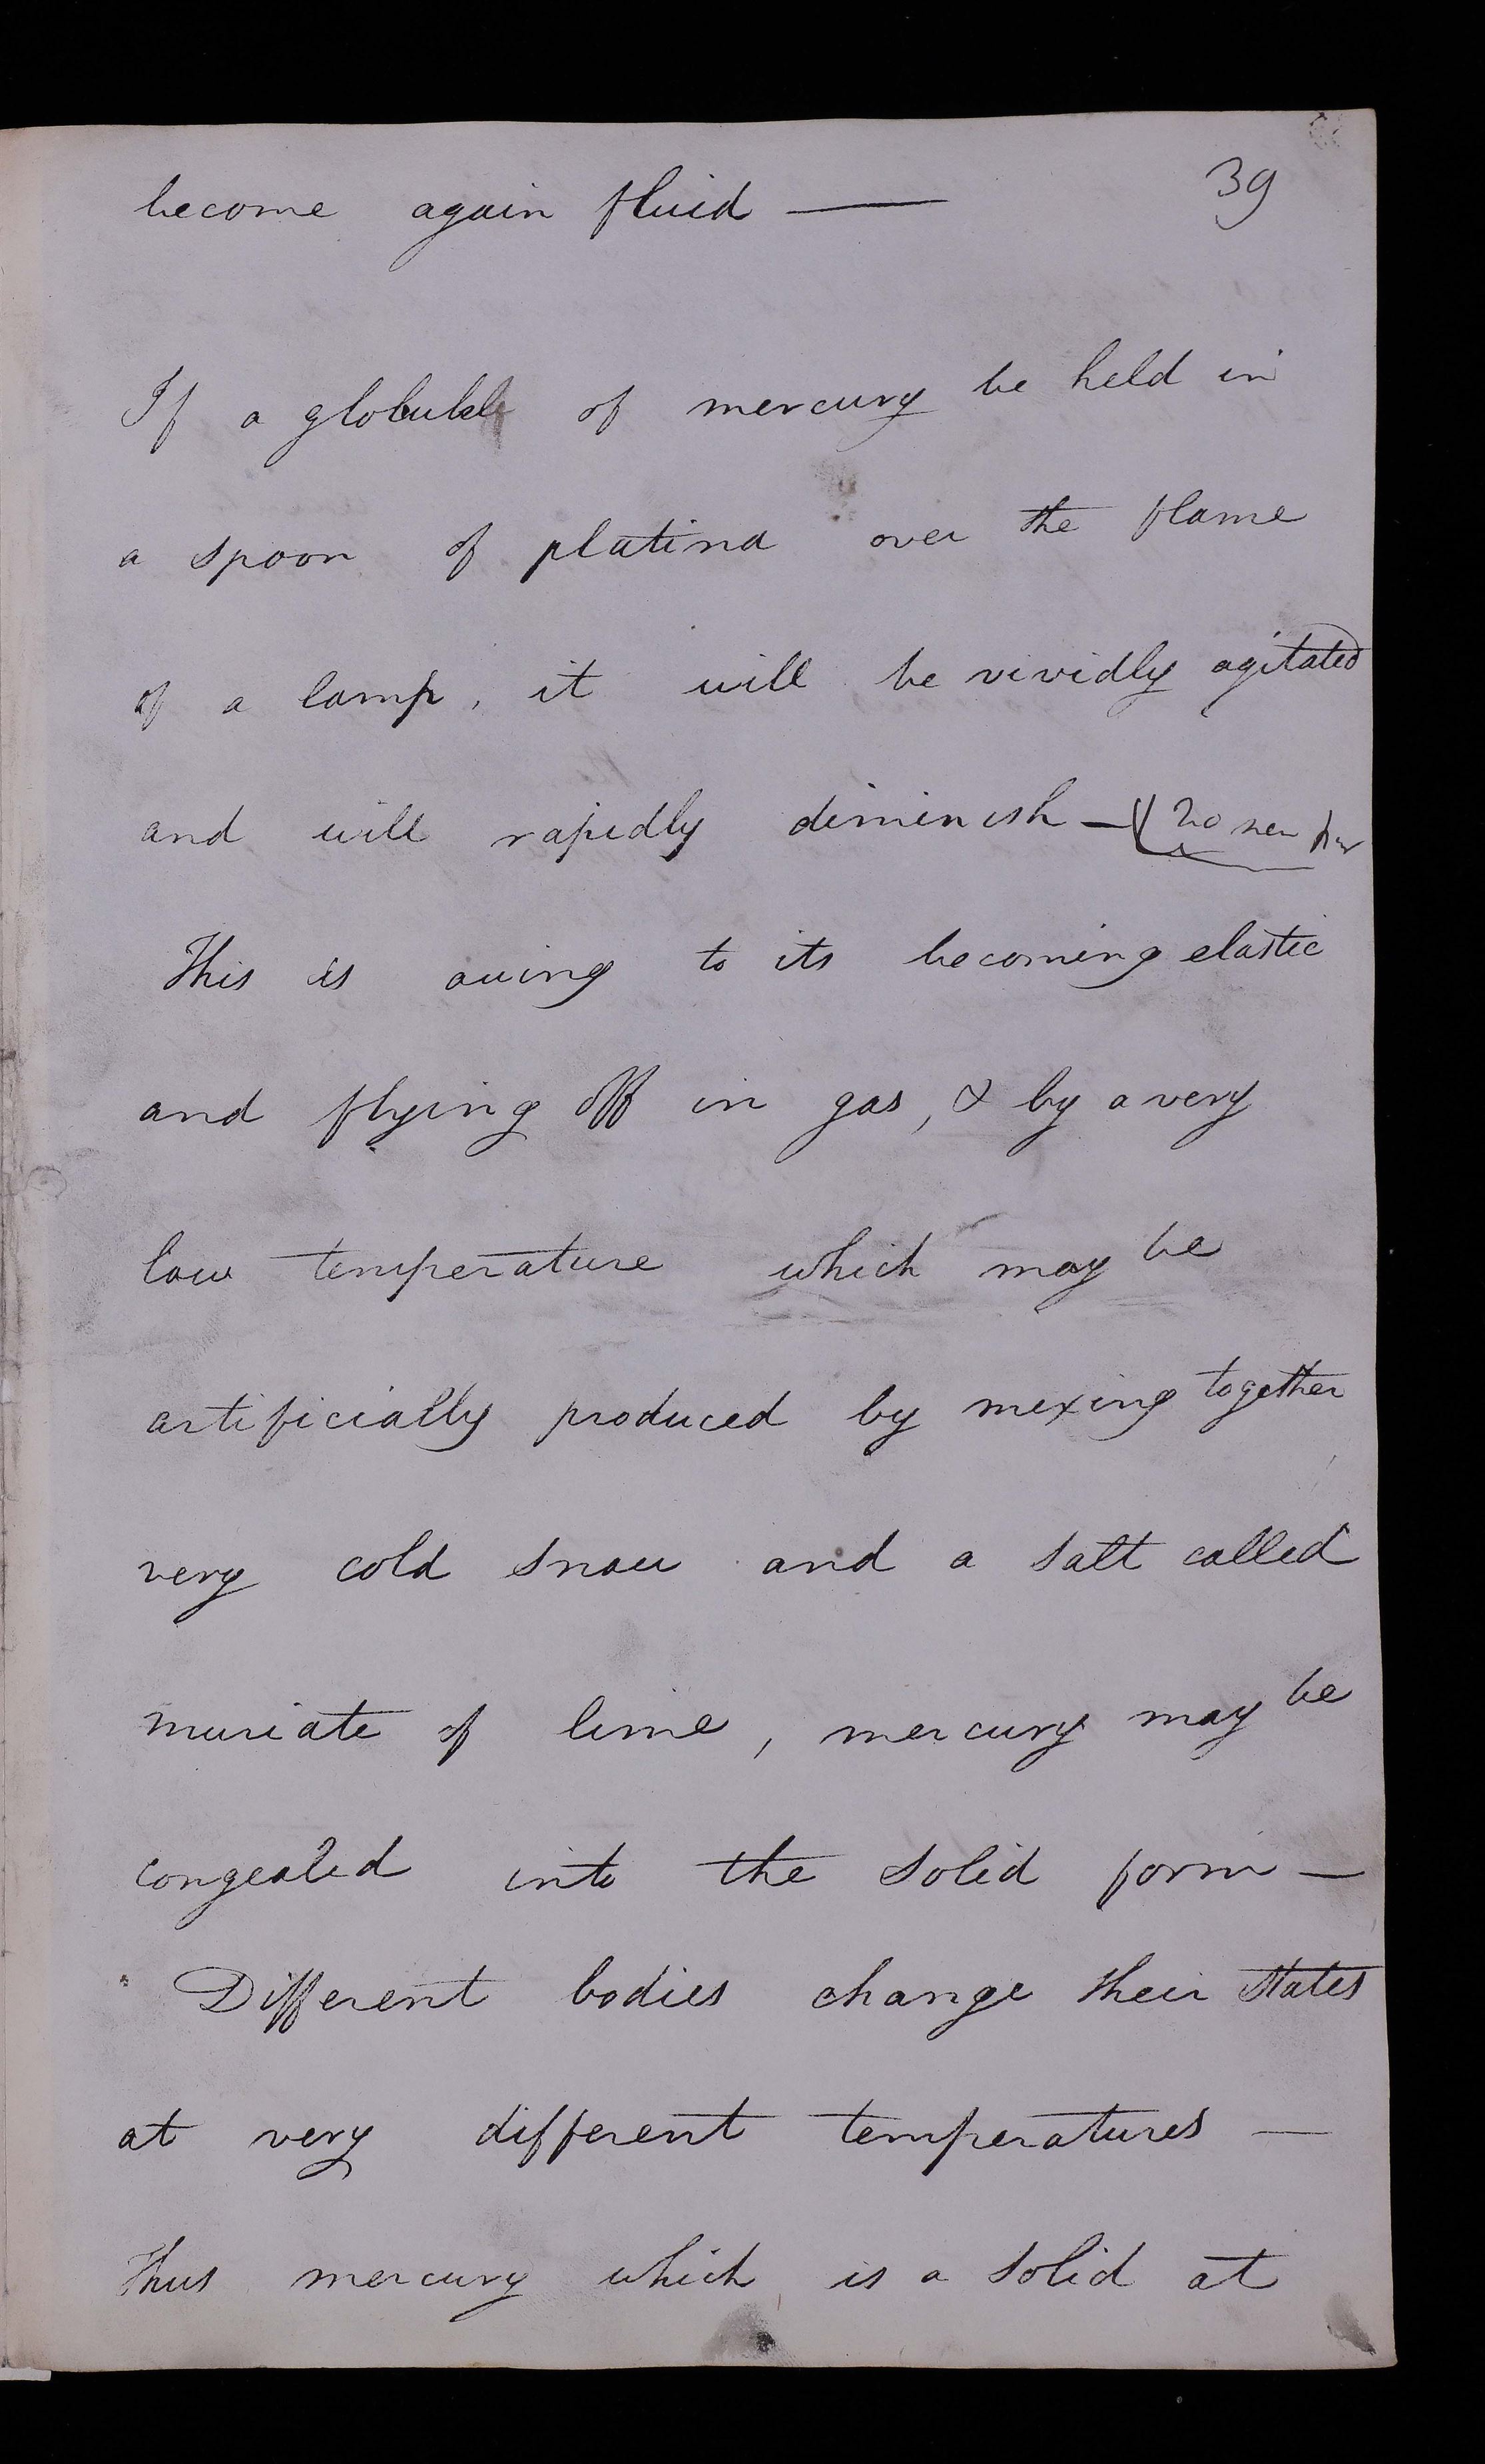 39
become again fluid —
If a globule of mercury be held in
a spoon of platina over the flame
of a lamp, it will be vividly agitated
and will rapidly diminish —
This is owing to its becoming elastic
and flying off in gas, & by a very
low temperature which may be
artificially produced by mixing together
very cold snow and a salt called
muriate of lime, mercury may be
congealed into the solid form —
Different bodies change their states
at very different temperatures —
Thus mercury which is a solid at